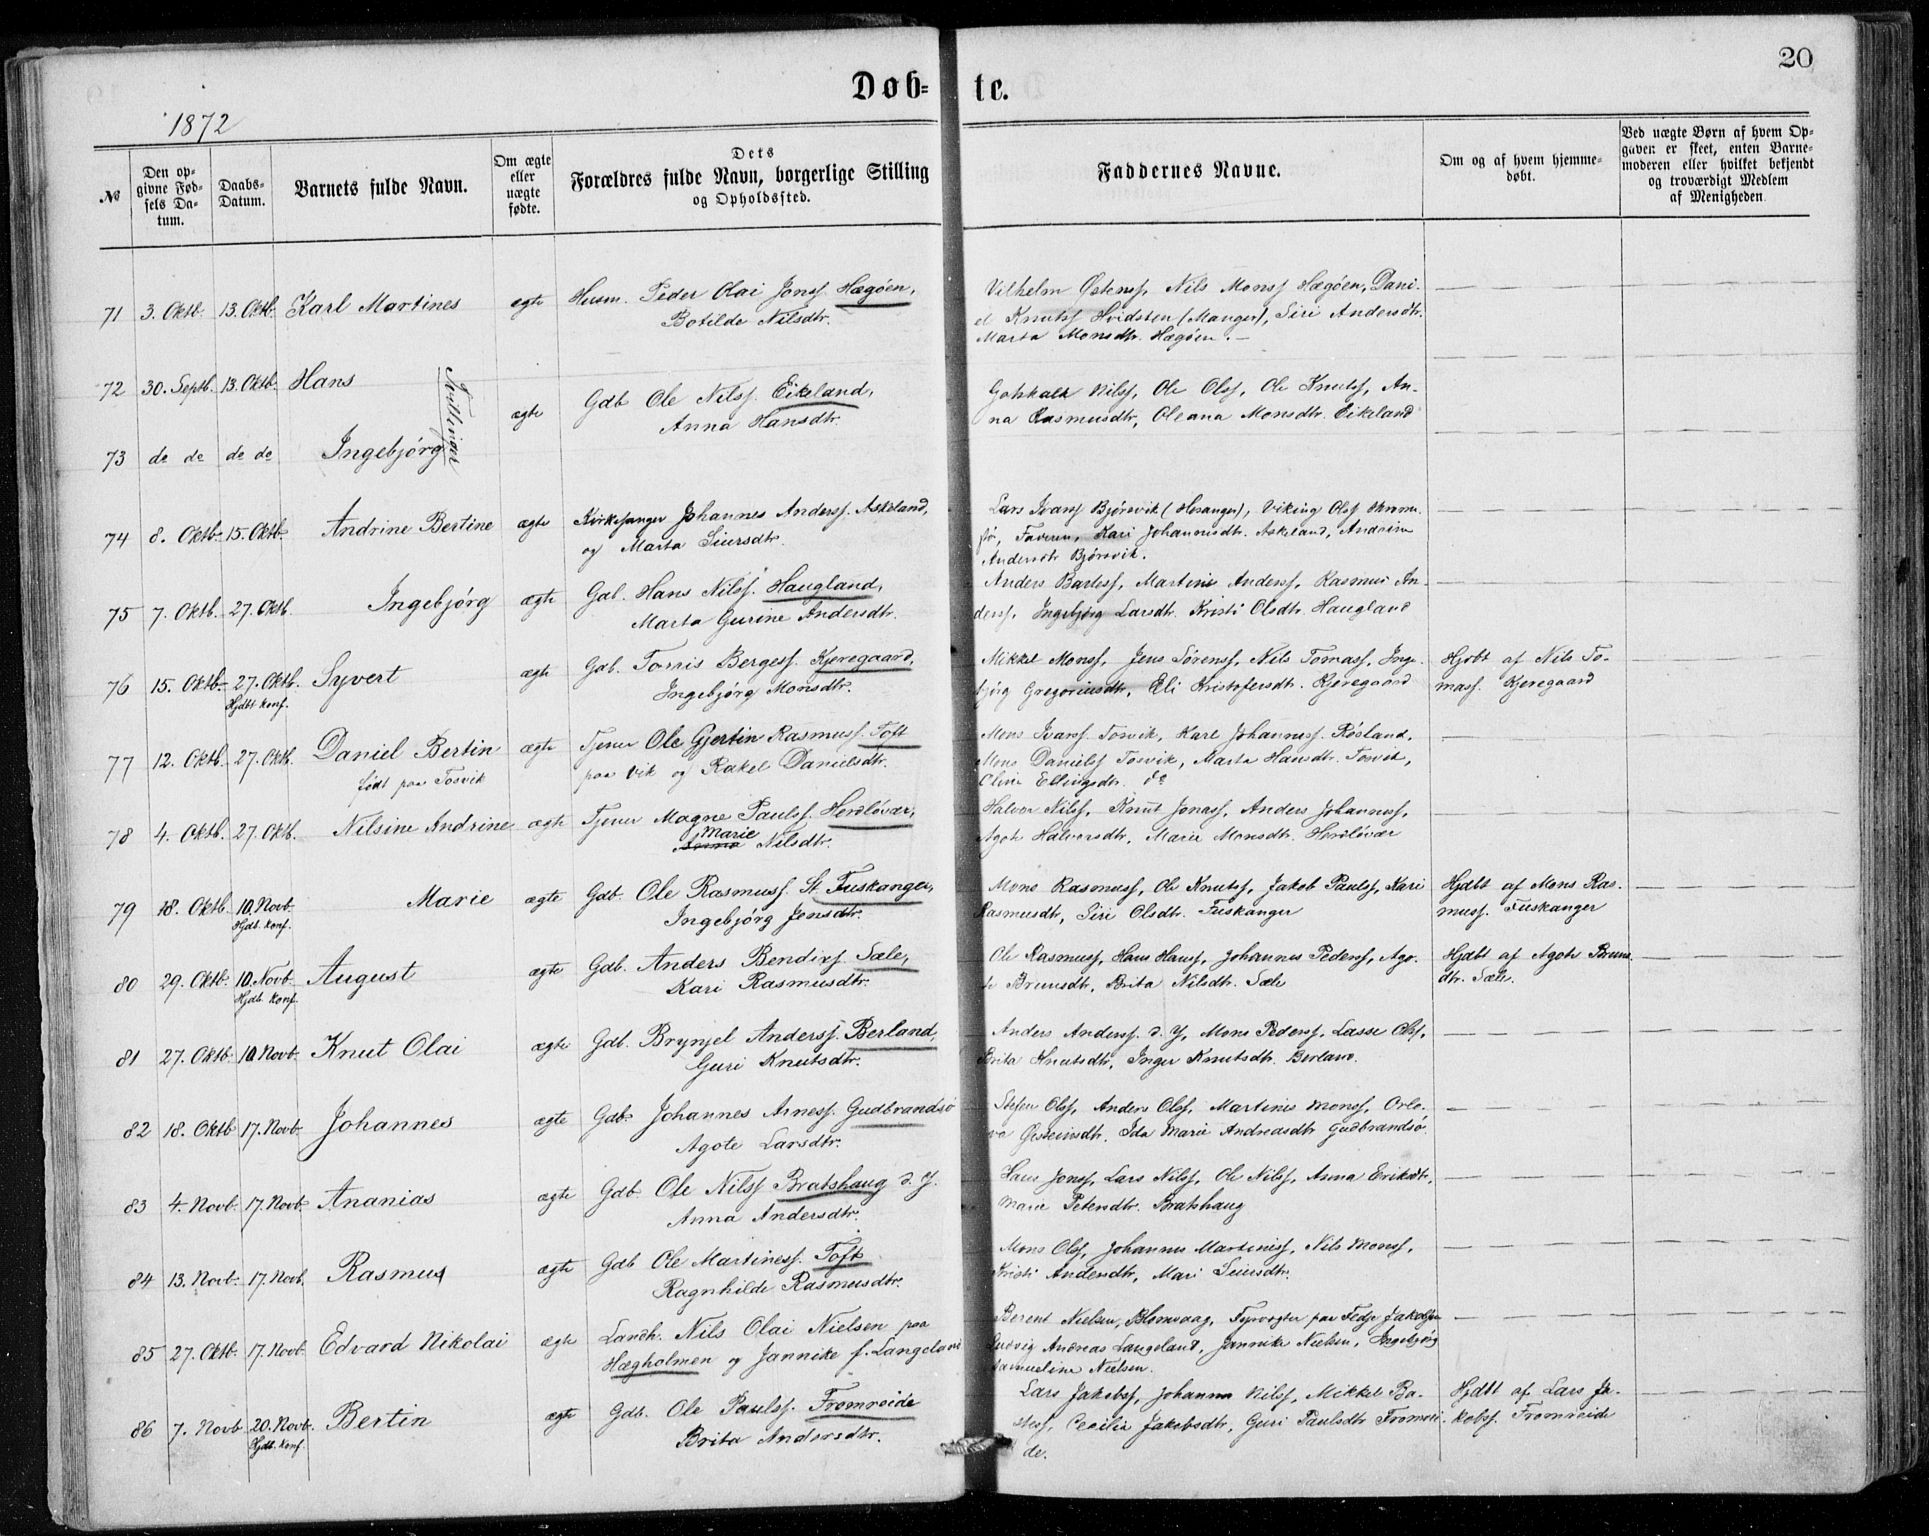 20
Døb- te.
1872
№
Den op-
givne Fød-
sels Da-
tum.
Daabs-
Datum.
Barnets fulde Navn.
Om ægte
eller
uægte
fødte.
Dets
Forældres fulde Navn, borgerlige Stilling
og Opholdssted.
Faddernes Navne.
Om og af hvem hjemme-
døbt.
Ved uægte Børn af hvem Op-
gaven er skeet, enten Barne-
moderen eller hvilket bekjendt
og troværdigt Medlem
af Menigheden.
71 3. Oktb. 13. Oktb. Karl Martines ægte Husm. Peder Olai Jonss. Hægøen,
Botilde Nilsdtr.
Vilhelm Østenss, Nils Monss Hægøen, Dani-
el Knutss Hvidsten (Manger), Siri Andersdtr.
Marta Monsdtr. Hægøen.
72 30. Septb. 13. Oktb. Hans Tvillinger
ægte Gdb Ole Nilss. Eikeland,
Anna Hansdtr.
Gotskalk Nilss, Ole Olss, Ole Knutss, An-
na Rasmusdtr, Oleana Monsdtr. Eikeland
73 do do do do Ingebjørg
74 8. Oktb. 15. Oktb. Andrine Bertine ægte Kirkesanger Johannes Anderss. Askeland,
og Marta Siursdtr.
Lars Ivarss Bjørsvik (Hosanger), Viking Olss
Kari Johannesdtr. Askeland, Andrine
Andersdtr Bjørsvik.
75 7. Oktb. 27. Oktb. Ingebjørg ægte Gdb. Hans Nilss. Haugland,
Marta Gurine Andersdtr.
Anders Barless, Martines Anderss, Rasmus An-
derss, Ingebjørg Larsdtr. Kristi Olsdtr. Haugland
76 15. Oktb. 27. Oktb. Syvert ægte Gdb. Torris Bergess. Kjeregaard,
Hjdbt konf.
Ingebjørg Monsdtr.
Mikkel Monss, Jens Sørenss, Nils Tomass, Inge-
bjørg Gregoriusdtr, Eli Kristofersdtr. Kjeregaard
Hjdbt af Nils To-
mass. Kjeregaard
77 12. Oktb. 27. Oktb. Daniel Bertin ægte Tjener Ole Gjertin Rasmuss. Toft
født paa Tosvik
paa Vik og Rakel Danielsdtr.
Mons Ivarss. Tosvik, Karl Johanness. Røsland,
Mons Danielss Tosvik, Marta Hansdtr. Tosvik,
Oline Ellingsdtr. do
78 4. Oktb. 27. Oktb. Nilsine Andrine ægte Tjener Magne Paulss. Herdløvær,
Marie
Nilsdtr.
Halvor Nilss, Knut Jonass, Anders Johanness,
Agote Halvorsdtr, Marie Monsdtr. Herdløvær
79 18. Oktb. 10. Novb. Marie ægte Gdb. Ole Rasmuss. St. Fuskanger,
Hjdbt. konf.
Ingebjørg Jensdtr.
Mons Rasmuss, Ole Knutss, Jakob Paulss, Kari
Rasmusdtr, Siri Olsdtr. Fuskanger
Hjdbt af Mons Ras-
muss. Fuskanger
80 29. Oktb. 10. Novb. August ægte Gdb. Anders Bendixs. Sæle,
Hjdb. konf.
Kari Rasmusdtr.
Ole Rasmuss, Hans Hanss, Johannes Pederss, Ago-
te Brunsdtr, Brita Nilsdtr. Sæle
Hjdbt af Agote Bruns-
dtr. Sæle.
81 27. Oktb. 10. Novb. Knut Olai ægte Gdb. Brynjel Anderss. Berland,
Guri Knutsdtr.
Anders Anderss. d. Y, Mons Pederss, Lasse Olss,
Brita Knutsdtr, Inger Knutsdtr. Berland.
82 18. Oktb 17. Novb. Johannes ægte Gdb. Johannes Arness. Gudbrandsø
Agote Larsdtr.
Stefen Olss, Anders Olss, Martines Monss,
Østeinsdtr. Ida Marie Andreasdtr Gudbrandsø.
83 4. Novb. 17. Novb. Ananias ægte Gdb. Ole Nilss Bratshaug d. Y.
Anna Andersdtr.
Hans Jonss, Lars Nilss, Ole Nilss, Anna Eriksdtr,
Marie Petersdtr. Bratshaug
84 13. Novb. 17. Novb. Rasmus ægte Gdb Ole Martiness. Toft
Ragnhilde Rasmusdtr.
Mons Olss, Johannes Martiness, Nils Monss,
Kristi Andersdtr, Mari Siursdtr.
85 27. Oktb. 17. Novb. Edvard Nikolai ægte Landh. Nils Olai Nielsen paa
Hægholmen og Jannike f. Langeland
Berent Nielsen, Blomvaag, Fyrvogter paa Fedje Jakobsen
Ludvig Andreas Langeland, Jannike Nielsen, Ingebjørg
Samueline Nielsen.
86 7. Novb 20. Novb. Bertin ægte Gdb. Ole Paulss. Fromreide
Hjdb. konf.
Brita Andersdtr.
Lars Jakobss, Johannes Nilss, Mikkel Ba-
Cecilia Jakobsdtr, Guri Paulsdtr Fromrei-
de.
Hjdbt af Lars Ja-
kobss. Fromreide